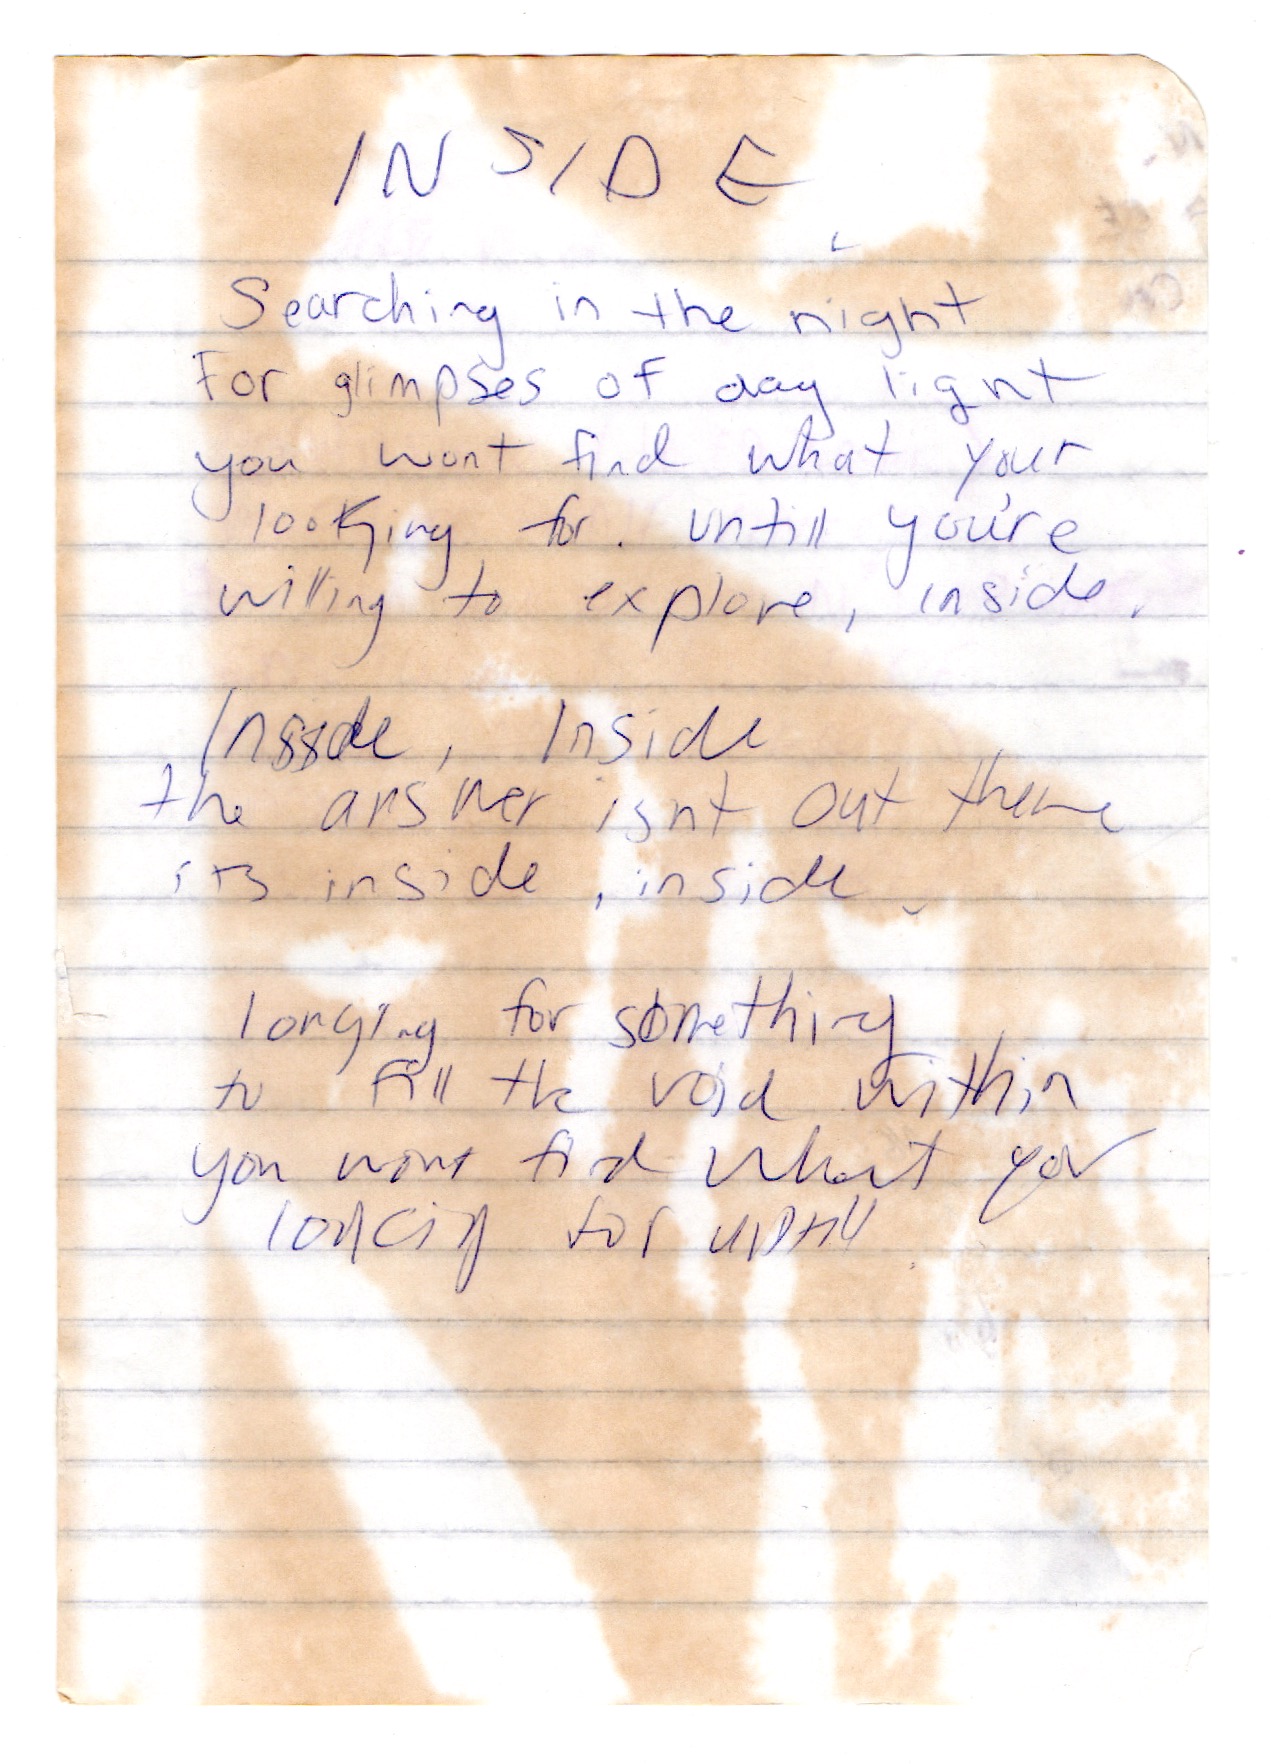 INSIDE
Searching in the night
For glimpses of day light
you wont find what your
looking for. untill you're
willing to explore, inside.
Inside, Inside
the answer isnt out there
its inside, inside
longing for something
to fill the void within
you wont find what your
looking for untill